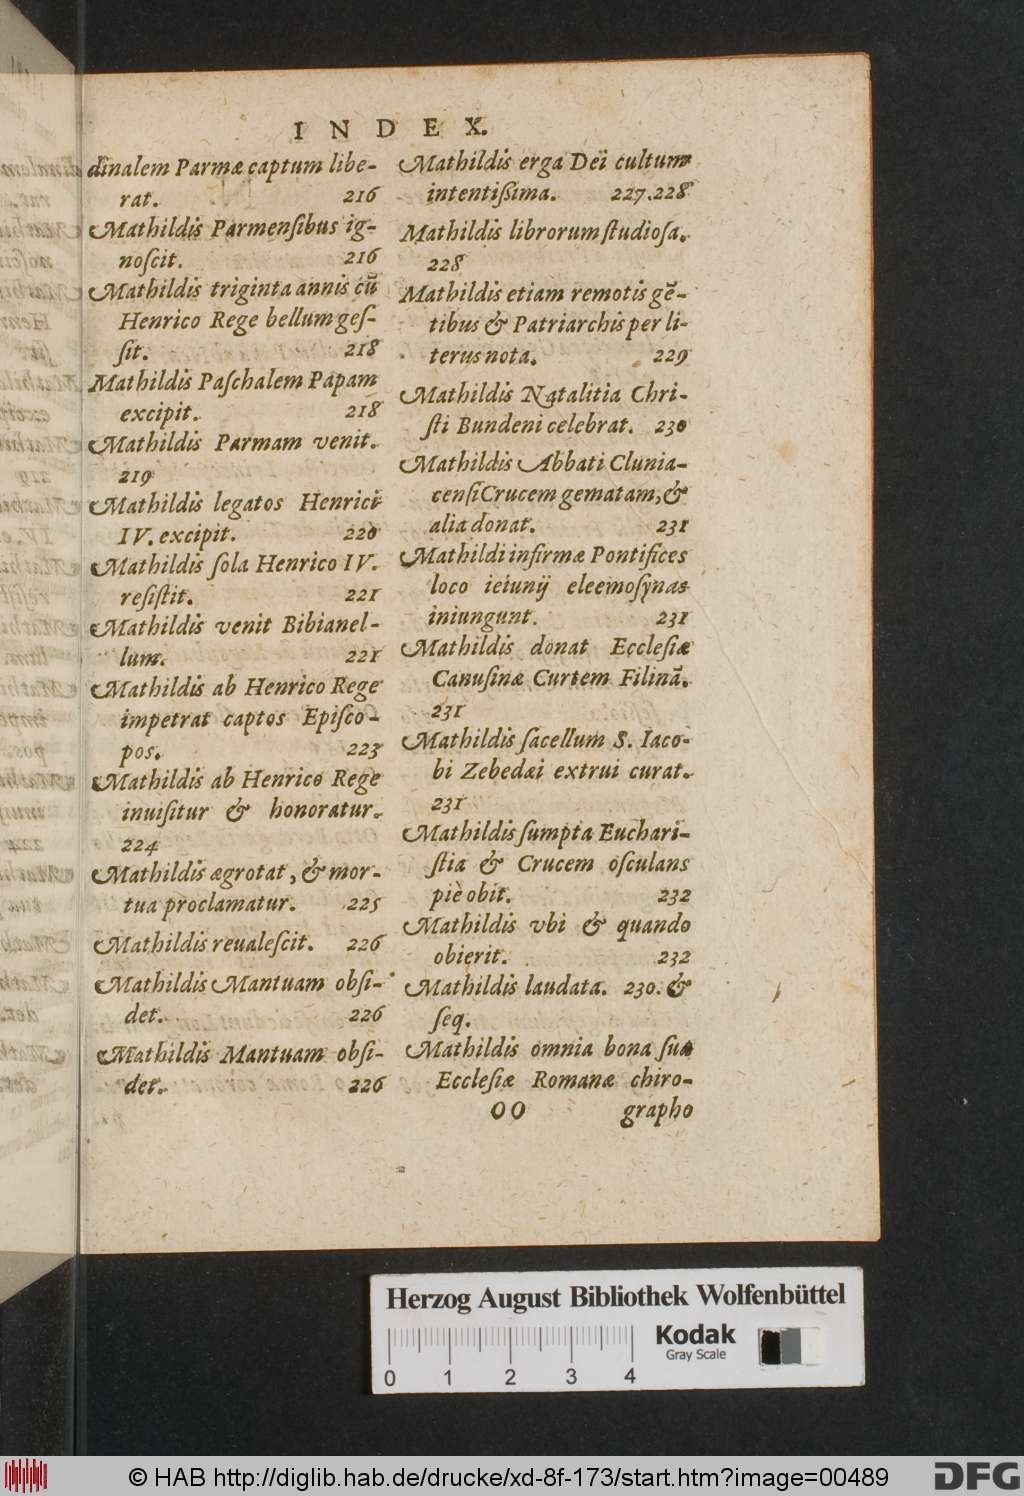 INDEX.
dinalem Parmæ captum libe-
rat. 216
Mathildis Parmensibus ig-
noscit. 216
Mathildis triginta annis cū
Henrico Rege bellum ges-
sit. 218
Mathildis Paschalem Papam
excipit. 218
Mathildis Parmam venit.
219
Mathildis legatos Henrici
IV. excipit. 220
Mathildis sola Henrico IV.
resistit. 221
Mathildis venit Bibianel-
lum. 221
Mathildis ab Henrico Rege
impetrat captos Episco-
pos. 223
Mathildis ab Henrico Rege
inuisitur & honoratur.
224
Mathildis ægrotat, & mor-
tua proclamatur. 225
Mathildis reualescit. 226
Mathildis Mantuam obsi-
det. 226
Mathildis Mantuam obsi-
det. 226
Mathildis erga Dei cultum
intentißima. 227.228
Mathildis librorum studiosa.
228
Mathildis etiam remotis gē-
tibus & Patriarchis per li-
terus nota. 229
Mathildis Natalitia Chri-
sti Bundeni celebrat. 230
Mathildis Abbati Clunia-
censi Crucem gematam, &
alia donat. 231
Mathildi infirmæ Pontifices
loco ieiunij eleemosynas
iniungunt. 231
Mathildis donat Ecclesiæ
Canusinæ Curtem Filinā.
231
Mathildis sacellum S. Iaco-
bi Zebedæi extrui curat.
231
Mathildis sumpta Euchari-
stia & Crucem osculans
piè obit. 232
Mathildis vbi & quando
obierit. 232
Mathildis laudata. 230. &
seq.
Mathildis omnia bona sua
Ecclesiæ Romanæ chiro-
OO grapho
Herzog August Bibliothek Wolfenbüttel
Kodak
Gray Scale
0 1 2 3 4
© HAB http://diglib.hab.de/drucke/xd-8f-173/start.htm?image=00489
DFG